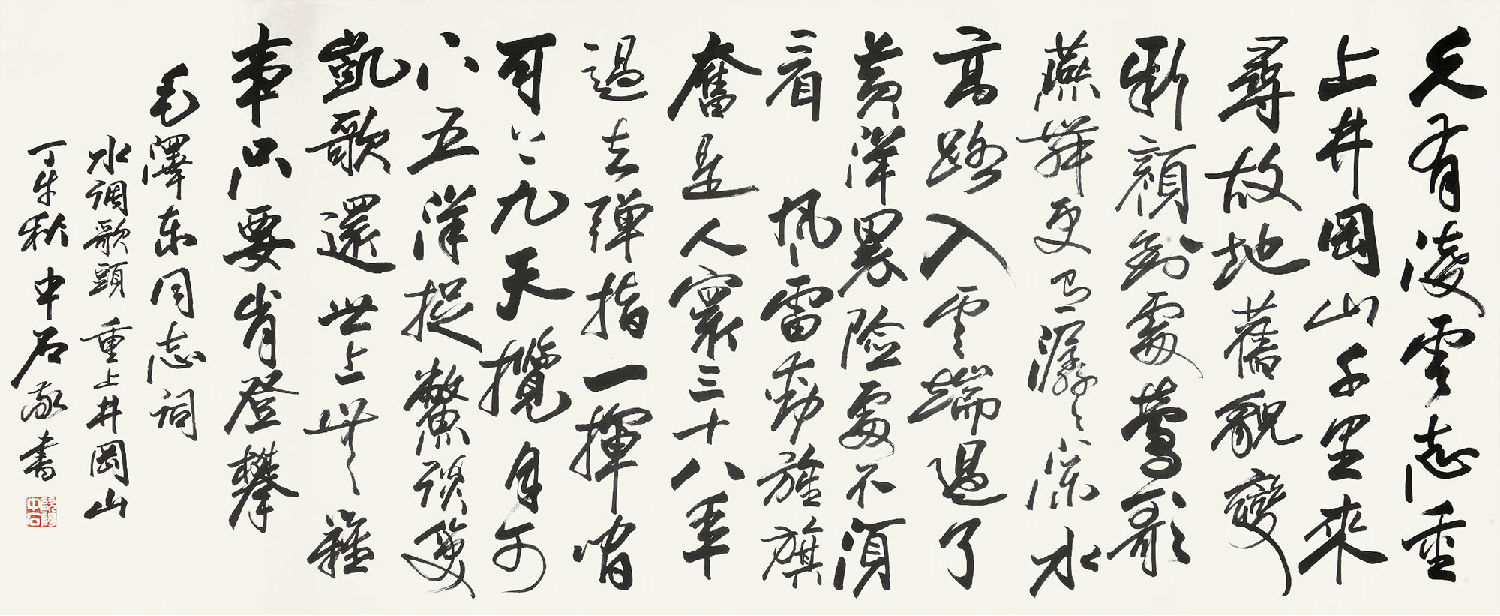 久有凌雲志重
上井岡山千里來
尋故地舊貌變
新顏到處鶯歌
燕舞更有潺〻流水
高路入雲端過了
黃洋界險處不須
看 風雷動旌旗
奮是人寰三十八年
過去彈指一揮間
可上九天攬月可
下五洋捉鱉談笑
凱歌還世上無難
事只要肯登攀
毛澤東同志詞
水調歌頭 重上井岡山
丁丑秋 中石敬書
歐陽中石